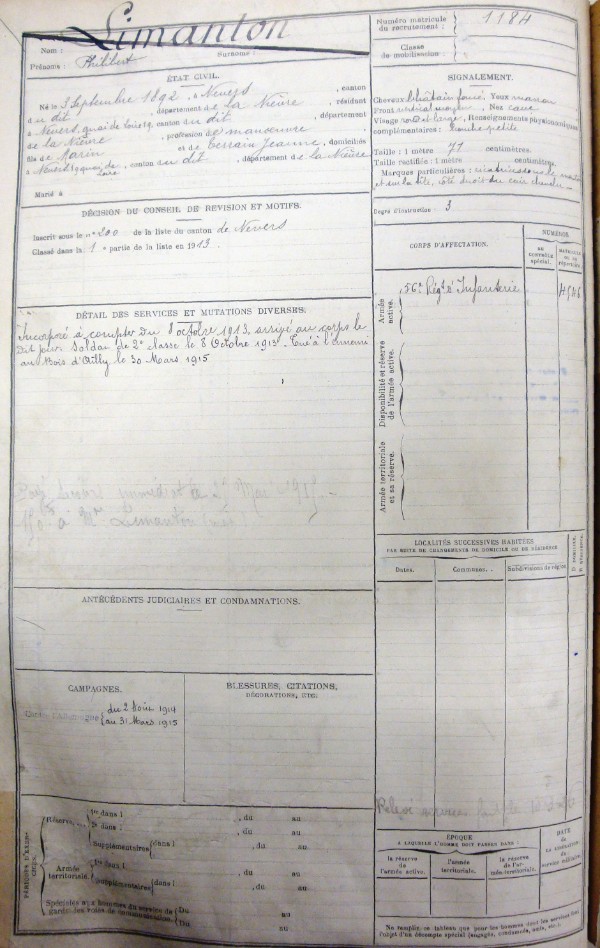 Limanton
Nom :
Prénoms : Philibert Surnoms :
ÉTAT CIVIL.
Né le 3 Septembre 1892, à Nevers, canton
du dit, département de La Nièvre, résidant
à Nevers, quai de, canton du dit, département
de La Nièvre, profession de manœuvre
fils de Marin et de Terrain Jeanne, domiciliés
à Nevers, quai de Loire, canton du dit, département de La Nièvre
Marié à
DÉCISION DU CONSEIL DE REVISION ET MOTIFS.
Inscrit sous le n° 200 de la liste du canton de Nevers
Classé dans la 1e partie de la liste en 1913.
DÉTAIL DES SERVICES ET MUTATIONS DIVERSES.
Incorporé à compter du 8 octobre 1913, arrivé au corps le
dit jour. Soldat de 2e classe le 8 Octobre 1913. Tué à l'ennemi
au Bois d'Ailly le 30 Mars 1915
immédiat
150f à Mme Limanton
ANTÉCÉDENTS JUDICIAIRES ET CONDAMNATIONS.
CAMPAGNES.
Contre l'Allemagne du 2 Août 1914
au 31 Mars 1915
BLESSURES, CITATIONS,
DÉCORATIONS, ETC.
PÉRIODES D'EXERCICES.
Réserve. 1re dans l , du au
2e dans l , du au
Supplémentaires dans l , du au
Armée territoriale. 1re dans l , du au
Supplémentaires dans l , du au
Spéciales aux hommes du service de Du au
garde des voies de communication. Du au
Numéro matricule
du recrutement : 1184
Classe
de mobilisation :
SIGNALEMENT.
Cheveux châtain foncé. Yeux marron
Front vertical moyen. Nez cave
Visage large, Renseignements physionomiques
complémentaires : bouche petite
Taille : 1 mètre 71 centimètres.
Taille rectifiée : 1 mètre centimètres.
Marques particulières : cicatrice sous le menton
et sur la tête, côté droit du cuir chevelu
Degré d'instruction : 3
CORPS D'AFFECTATION.
NUMÉROS
au contrôle spécial.
matricule ou au répertoire.
Armée active.
56e Régt d'Infanterie
Disponibilité et réserve de l'armée active.
Armée territoriale et sa réserve.
LOCALITÉS SUCCESSIVES HABITÉES
PAR SUITE DE CHANGEMENTS DE DOMICILE OU DE RÉSIDENCE
Dates. Communes. Subdivisions de région D domicile. R résidence.
Relevé
ÉPOQUE
A LAQUELLE L'HOMME DOIT PASSER DANS :
la réserve de l'armée active.
l'armée territoriale.
la réserve de l'armée territoriale.
DATE
de la libération du service militaire.
Ne remplir ce tableau que pour les hommes dont les services font
l'objet d'un décompte spécial (engagés, condamnés, omis, etc.).